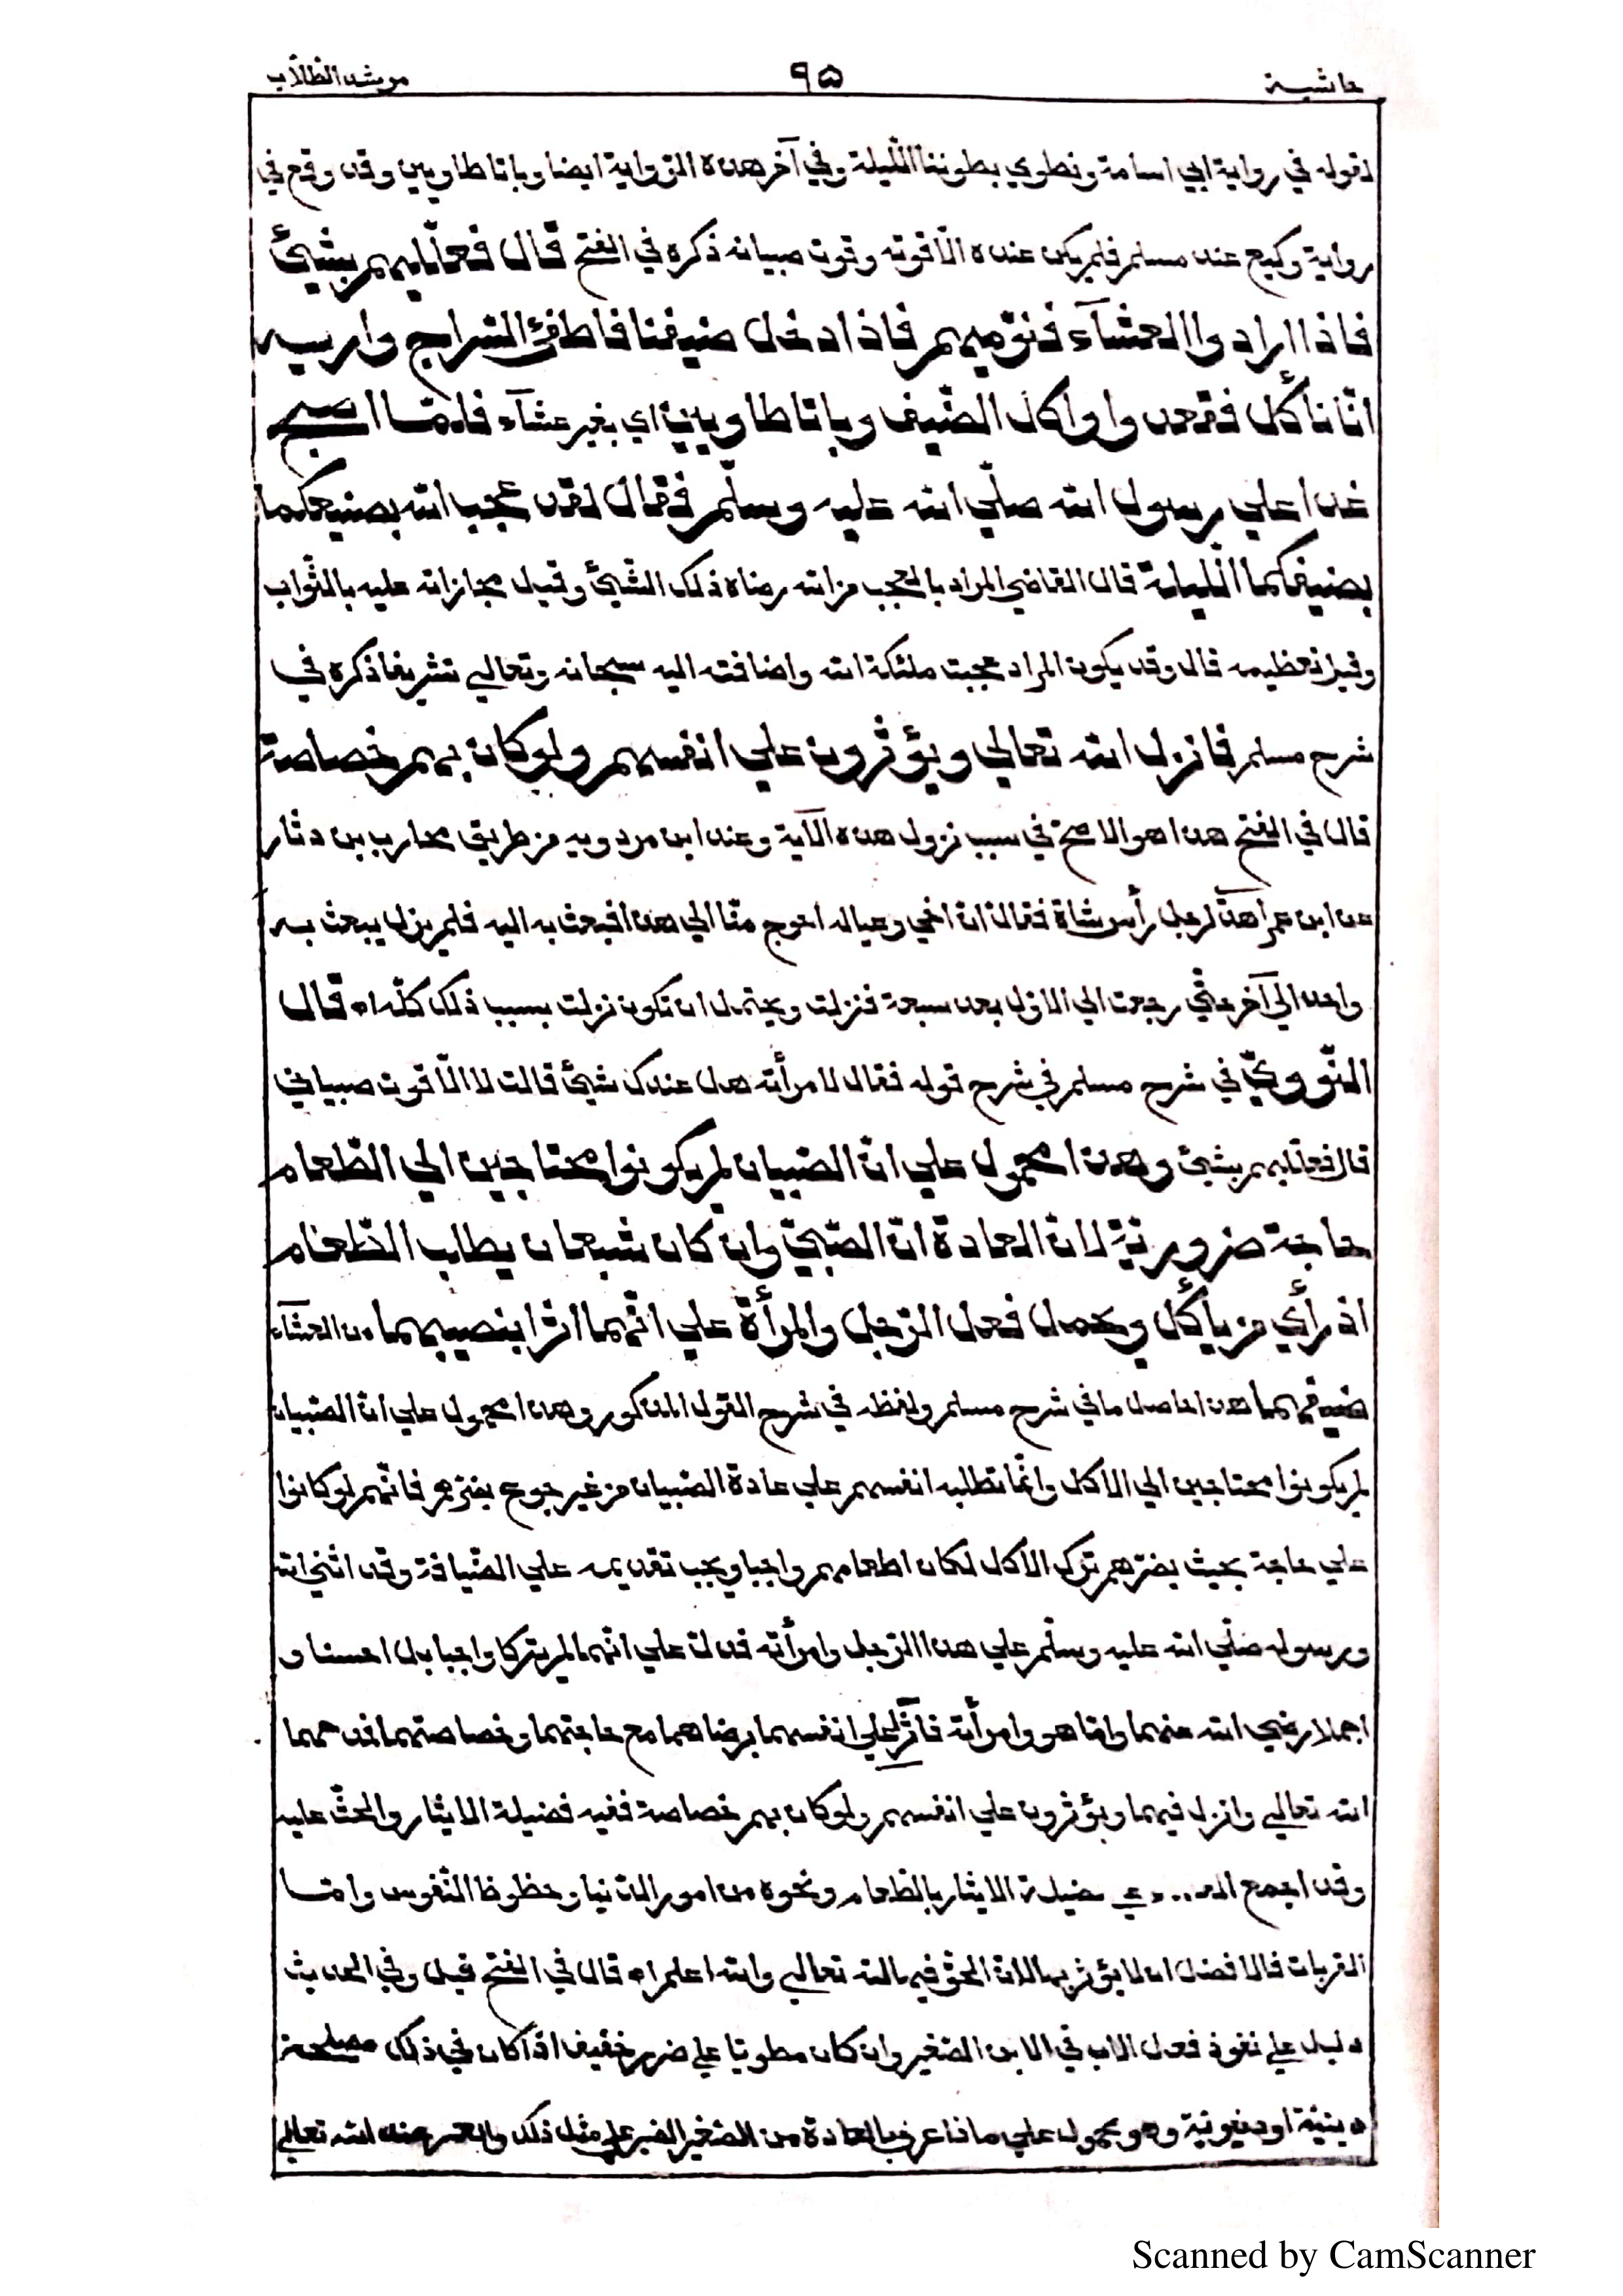 حاشية ٩٥ مرشد الطّلّاب
لقوله في رواية ابي اسامة ونطوي بطوننا اللّيلة وفي آخر هذه الرّواية ايضا وباتا طاويين وقد وقع في
رواية وكيع عند مسلم فلم يكن عنده الّا قوته وقوت صبيانه ذكره في الفتح قال فعلّليهم بشيئ
فاذا ارادوا العشآء فنوّميهم فاذا دخل ضيفنا فاطفئ السّراج واريه
انّا نأكل فقعدوا واكل الضّيف وباتا طاويين اي بغير عشآء فلمّا اصبح
غدا علي رسول الله صلّي الله عليه وسلّم فقال لقد عجب الله بصنيعكما
بضيفكما اللّيلة قال القاضي المراد بالعجب من الله رضاه ذلك الشّيئ وقيل مجازاته عليه بالثّواب
وقيل تعظيمه قال وقد يكون المراد عجبت ملئكة الله واضافته اليه سبحانه وتعالي تشريفا ذكره في
شرح مسلم فانزل الله تعالي ويؤثرون علي انفسهم ولو كان بهم خصاصة
قال في الفتح هذا هو الاصحّ في سبب نزول هذه الآية وعند ابن مردويه من طريق محارب بن دثار
عن ابن عمر اهدي لرجل رأس شاة فقال انّ اخي وعياله احوج منّا الي هذا فبعث به اليه فلم يزل يبعث به
واحد الي آخر حتّي رجعت الي الاوّل بعد سبعة فنزلت ويحتمل ان تكون نزلت بسبب ذلك كلّه اه قال
النّوويّ في شرح مسلم في شرح قوله فقال لامرأته هل عندك شيئ قالت لا الّا قوت صبياني
قال فعلّليهم بشيئ وهذا محمول علي انّ الصّبيان لم يكونوا محتاجين الي الطّعام
حاجة ضروريّة لانّ العادة انّ الصّبيّ وان كان شبعان يطلب الطّعام
اذ رأي من يأكل ويحمل فعل الرّجل والمرأة علي انّهما اثرا بنصيبهما من العشآء
ضيفهما هذا حاصل ما في شرح مسلم ولفظه في شرح القول المذكور وهذا محمول علي انّ الصّبيان
لم يكونوا محتاجين الي الاكل وانّما تطلبه انفسهم علي عادة الصّبيان من غير جوع يضرّهم فانّهم لو كانوا
علي حاجة بحيث يضرّهم ترك الاكل لكان اطعامهم واجبا ويجب تقديمه علي الضّيافة وقد اثني الله
ورسوله صلّي الله عليه وسلّم علي هذا الرّجل وامرأته فدلّ علي انّهما لم يتركا واجبا بل احسنا و
اجملا رضي الله عنهما وامّا هو وامرأته فآثرا علي انفسهما برضاهما مع حاجتهما وخصاصتهما فمدحهما
الله تعالي وانزل فيهما ويؤثرون علي انفسهم ولو كان بهم خصاصة ففيه فضيلة الايثار والحثّ عليه
وقد اجمع فضيلة الايثار بالطّعام ونحوه من امور الدّنيا وحظوظ النّفوس وامّا
القربات فالافضل ان لا يؤثر بها لانّ الحقّ فيها لله تعالي والله اعلم اه قال في الفتح قيل وفي الحديث
دليل علي نفوذ فعل الاب في الابن الصّغير وان كان مطويّا علي ضرر خفيف اذا كان في ذلك مصلحة
دينيّة او دنيويّة وهو محمول علي ما اذا عرف بالعادة من الصّغير الصّبر علي مثل ذلك والعلم عند الله تعالي
Scanned by CamScanner